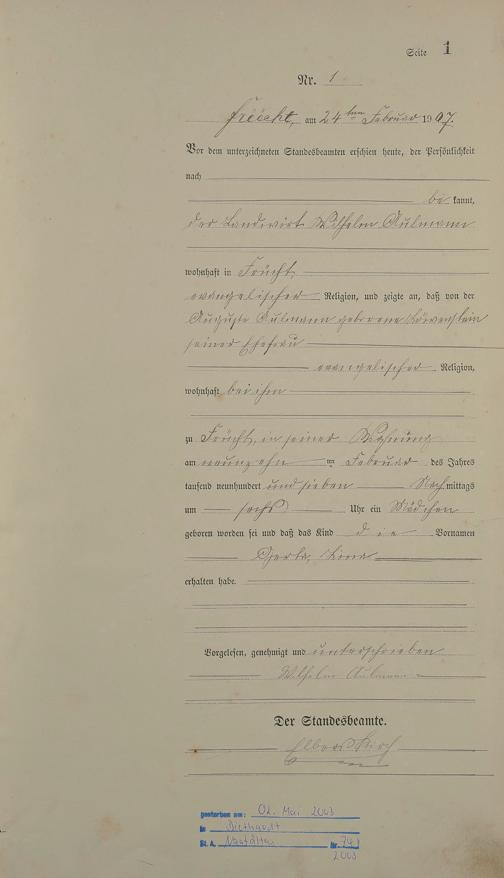 Seite 1
Nr. 1
Frücht, am 24ten Februar 1907.
Vor dem unterzeichneten Standesbeamten erschien heute, der Persönlichkeit
nach
be kannt,
der Landwirt Wilhelm Aulmann
wohnhaft in Frücht
evangelischer Religion, und zeigte an, daß von der
Auguste Aulmann geborene Löwenstein
seiner Ehefrau
evangelischer Religion,
wohnhaft bei ihm
zu Frücht, in seiner Wohnung
am neunzehn ten Februar des Jahres
tausend neunhundert und sieben Nach mittags
um sechs Uhr ein Mädchen
geboren worden sei und daß das Kind die Vornamen
Lina
erhalten habe.
Vorgelesen, genehmigt und unterschrieben
Wilhelm Aulmann
Der Standesbeamte.
Elbers Kirch
gestorben am: 02. Mai 2003
in
St. A. Nastätten Nr. 74
2003